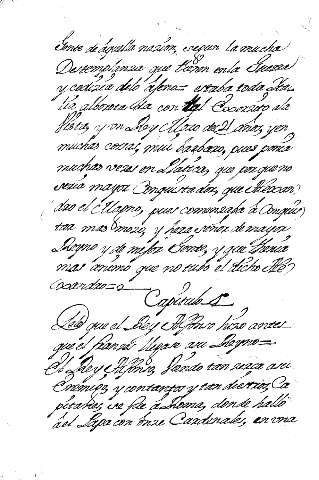 Gente de aquella nazion, segun la mucha
Destemplanza que tienen en la Guerra
y codizia delo ageno = estaba toda Ita
lia alborotada con tal Exerzito ala
vista, y un Rey Mozo de 21 años, y en
muchas cosas, muy barbaro, pues ponia
muchas vezes en Platica, que porque no
seria mayor Conquistador, que Alexan
dro el Magno, pues comenzaba à Conquis
tar mas mozo, y hera señor de mayor
Reyno y de mejor Gente, y que tenia
mas animo que no tubo el dicho Ale
xandro =
Capitulo
Lo que el Rey Alfonso hizo antes
que el franzes llegase a su Reyno =
El Rey Alfonso, viendo tan zerca a su
Enemigo, y con tantos y tan diestros Ca
pitanes, se fue à Roma, donde hallò
àel Papa con onze Cardenales, en una